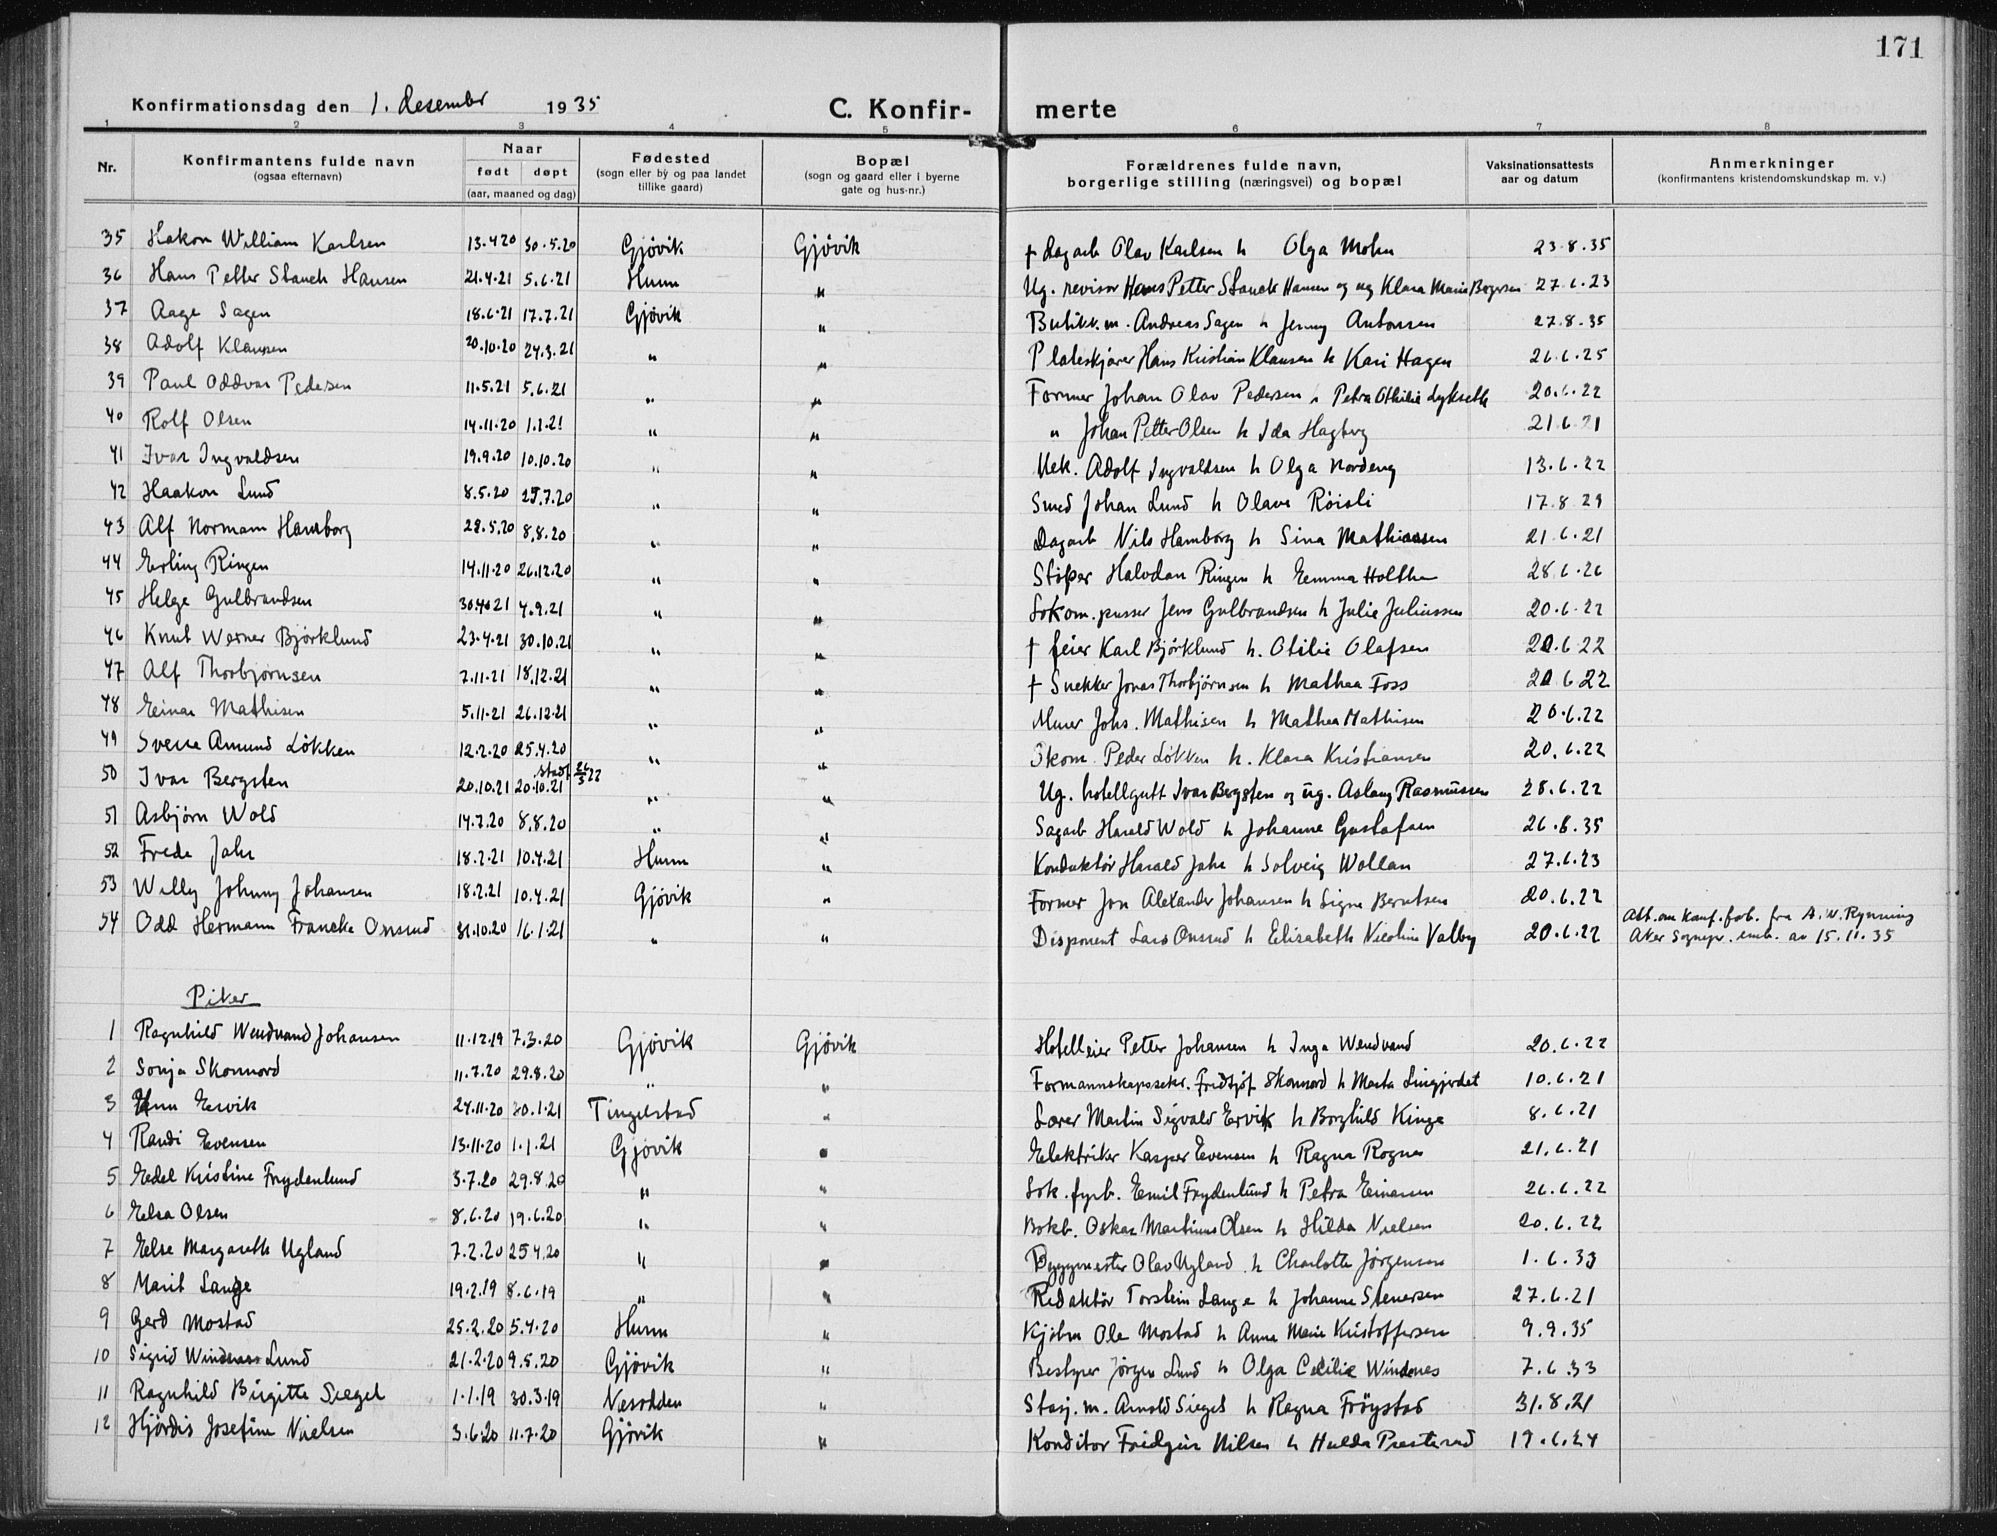 171
Konfirmationsdag den 1. desember 1935 C. Konfir- merte
1 2 3 4 5 6 7 8
Nr. Konfirmantens fulde navn (ogsaa efternavn) Naar født døpt (aar, maaned og dag) Fødested (sogn eller by og paa landet tillike gaard) Bopæl (sogn og gaard eller i byerne gate og hus-nr.) Forældrenes fulde navn, borgerlige stilling (næringsvei) og bopæl Vaksinationsattests aar og datum Anmerkninger (konfirmantens kristendomskundskap m. v.)
35 Hakon William Karlsen 13.4.20 30.5.20 Gjövik Gjövik † dagarb Olav Karlsen h Olga Mohn 23.8.35
36 Hans Petter Stanck Hansen 21.4.21 5.6.21 Hunn " Ug. revisor Hans Petter Stanck Hansen og ug Klara Marie 27.6.23
37 Aage Sagen 18.6.21 17.7.21 Gjövik " Butikk.m. Andreas Sagen h Jenny Antonsen 27.8.35
38 Adolf Klausen 20.10.20 24.3.21 " " Plateskjærer Hans Kristian Klausen h Kari Hagen 26.6.25
39 Paul Oddvar Pedersen 11.5.21 5.6.21 " " Former Johan Olav Pedersen h Petra Othilie Lykseth 20.6.22
40 Rolf Olsen 14.11.20 1.1.21 " " " Johan Petter Olsen h Ida Hagberg 21.6.21
41 Ivar Ingvaldsen 19.9.20 10.10.20 " " Mek. Adolf Ingvaldsen h Olga Nordeng 13.6.22
42 Haakon Lund 8.5.20 25.7.20 " " Smed Johan Lund h Olava Röisli 17.8.29
43 Alf Normann Hamborg 28.5.20 8.8.20 " " Dagarb Nils Hamborg h Sina Mathiassen 21.6.21
44 Erling Ringen 14.11.20 26.12.20 " " Stöper Halvdan Ringen h Emma Holthe 28.6.26
45 Helge Gulbrandsen 30.4.21 4.9.21 " " Lokom.pusser Jens Gulbrandsen h Julie Juliussen 20.6.22
46 Knut Werner Björklund 23.4.21 30.10.21 " " † feier Karl Björklund h. Otilie Olafsen 20.6.22
47 Alf Thorbjörnsen 7.11.21 18.12.21 " " † Snekker Jonas Thorbjörnsen h Mathea Foss 20.6.22
48 Einar Mathisen 5.11.21 26.12.21 " " Murer Johs. Mathisen h Mathea Mathisen 20.6.22
49 Sverre Amund Lökken 12.2.20 25.4.20 " " Skom. Peder Lökken h. Klara Kristiansen 20.6.22
50 Ivar Bergsten 20.10.21 20.10.21 stadf 26/3 22 " " Ug. hotellgutt Ivar Bergsten og ug. Aslaug Rasmussen 28.6.22
51 Asbjörn Wold 14.7.20 8.8.20 " " Sagarb Harald Wold h Johanne Gustafsen 26.8.35
52 Frede Jahr 18.2.21 10.4.21 Hunn " Konduktör Harald Jahr h Solveig Wollan 27.6.23
53 Willy Johnny Johansen 18.2.21 10.4.21 Gjövik " Former Jon Alexander Johansen h Signe Berntsen 20.6.22
54 Odd Hermann Francke Onsrud 31.10.20 16.1.21 " " Disponent Lars Onsrud h Elisabeth Nicoline Valby 20.6.22 Att. om konf.forb. fra A. W. Rynning
Aker Sognepr. emb. av 15.11.35
Piker
1 Ragnhild Wendvand Johansen 11.12.19 7.3.20 Gjövik Gjövik Hotelleier Petter Johansen h Inga Wendvand 20.6.22
2 Sonja Skonnord 11.7.20 29.8.20 " " Formannskapssekr. Fridtjof Skonnord h Marta Lingjerdet 10.6.21
3 Unn Ervik 24.11.20 30.1.21 Tingelstad " Lærer Martin Sigvald Ervik h Borghild Kinge 8.6.21
4 Randi Evensen 13.11.20 1.1.21 Gjövik " Elektriker Kasper Evensen h Ragna Rognes 21.6.21
5 Edel Kristine Frydenlund 3.7.20 29.8.20 " " Lok.fyrb. Emil Frydenlund h Petra Einarsen 26.6.22
6 Elsa Olsen 8.6.20 19.6.20 " " Bokb. Oskar Martinus Olsen h Hilda Nielsen 20.6.22
7 Else Margareth Ugland 7.2.20 25.4.20 " " Byggmester Olav Ugland h Charlotte Jörgensen 1.6.33
8 Marit Lange 19.2.19 8.6.19 " " Redaktör Torstein Lange h Johanne Stenersen 27.6.21
9 Gerd Mostad 25.2.20 5.4.20 Hunn " Kjöbm Ole Mostad h Anna Marie Kristoffersen 9.9.35
10 Sigrid Windnæs Lund 21.2.20 9.5.20 Gjövik " Bestyrer Jörgen Lund h Olga Cecilie Windenes 7.6.33
11 Ragnhild Birgitte Siegel 1.1.19 30.3.19 Næsodden " Stasj.m. Arnold Siegel h Ragna Fröystad 31.8.21
12 Hjördis Josefine Nielsen 3.6.20 11.7.20 Gjövik " Konditor Fridgin Nilsen h Hulda Presterud 19.6.24